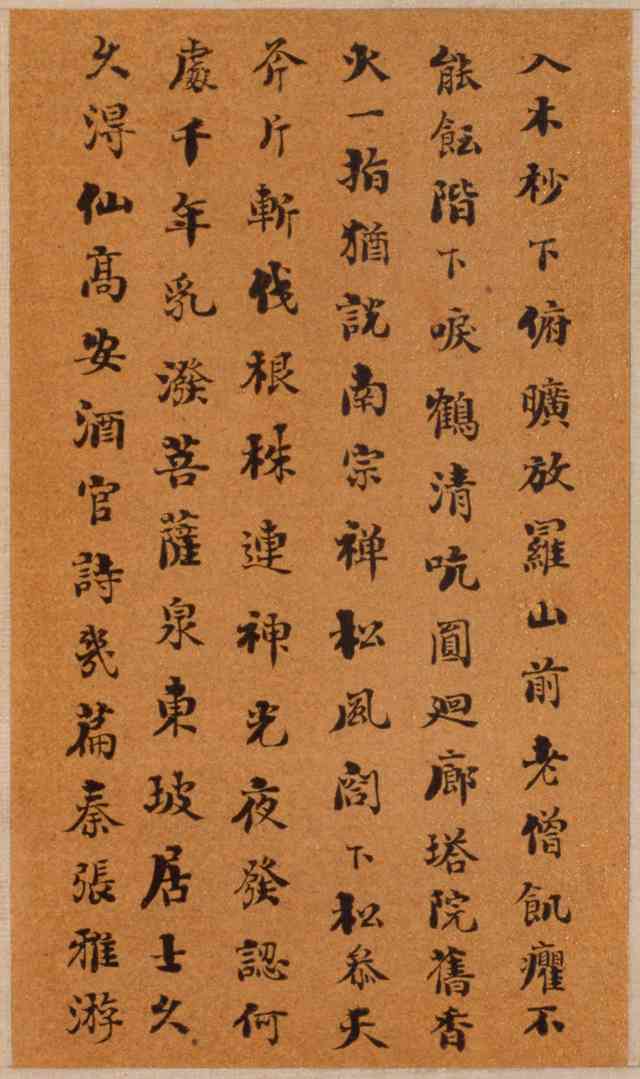 入木杪下俯曠放羅山前老僧飢癯不
能飪階下唳鶴清吭圓廻廊塔院舊香
火一指猶說南宗禅松風閣下松叅天
斧斤斬伐根株連神光夜發認何
處千年乳潑菩薩泉東坡居士久
久得仙髙安酒官詩幾篇秦張雅游